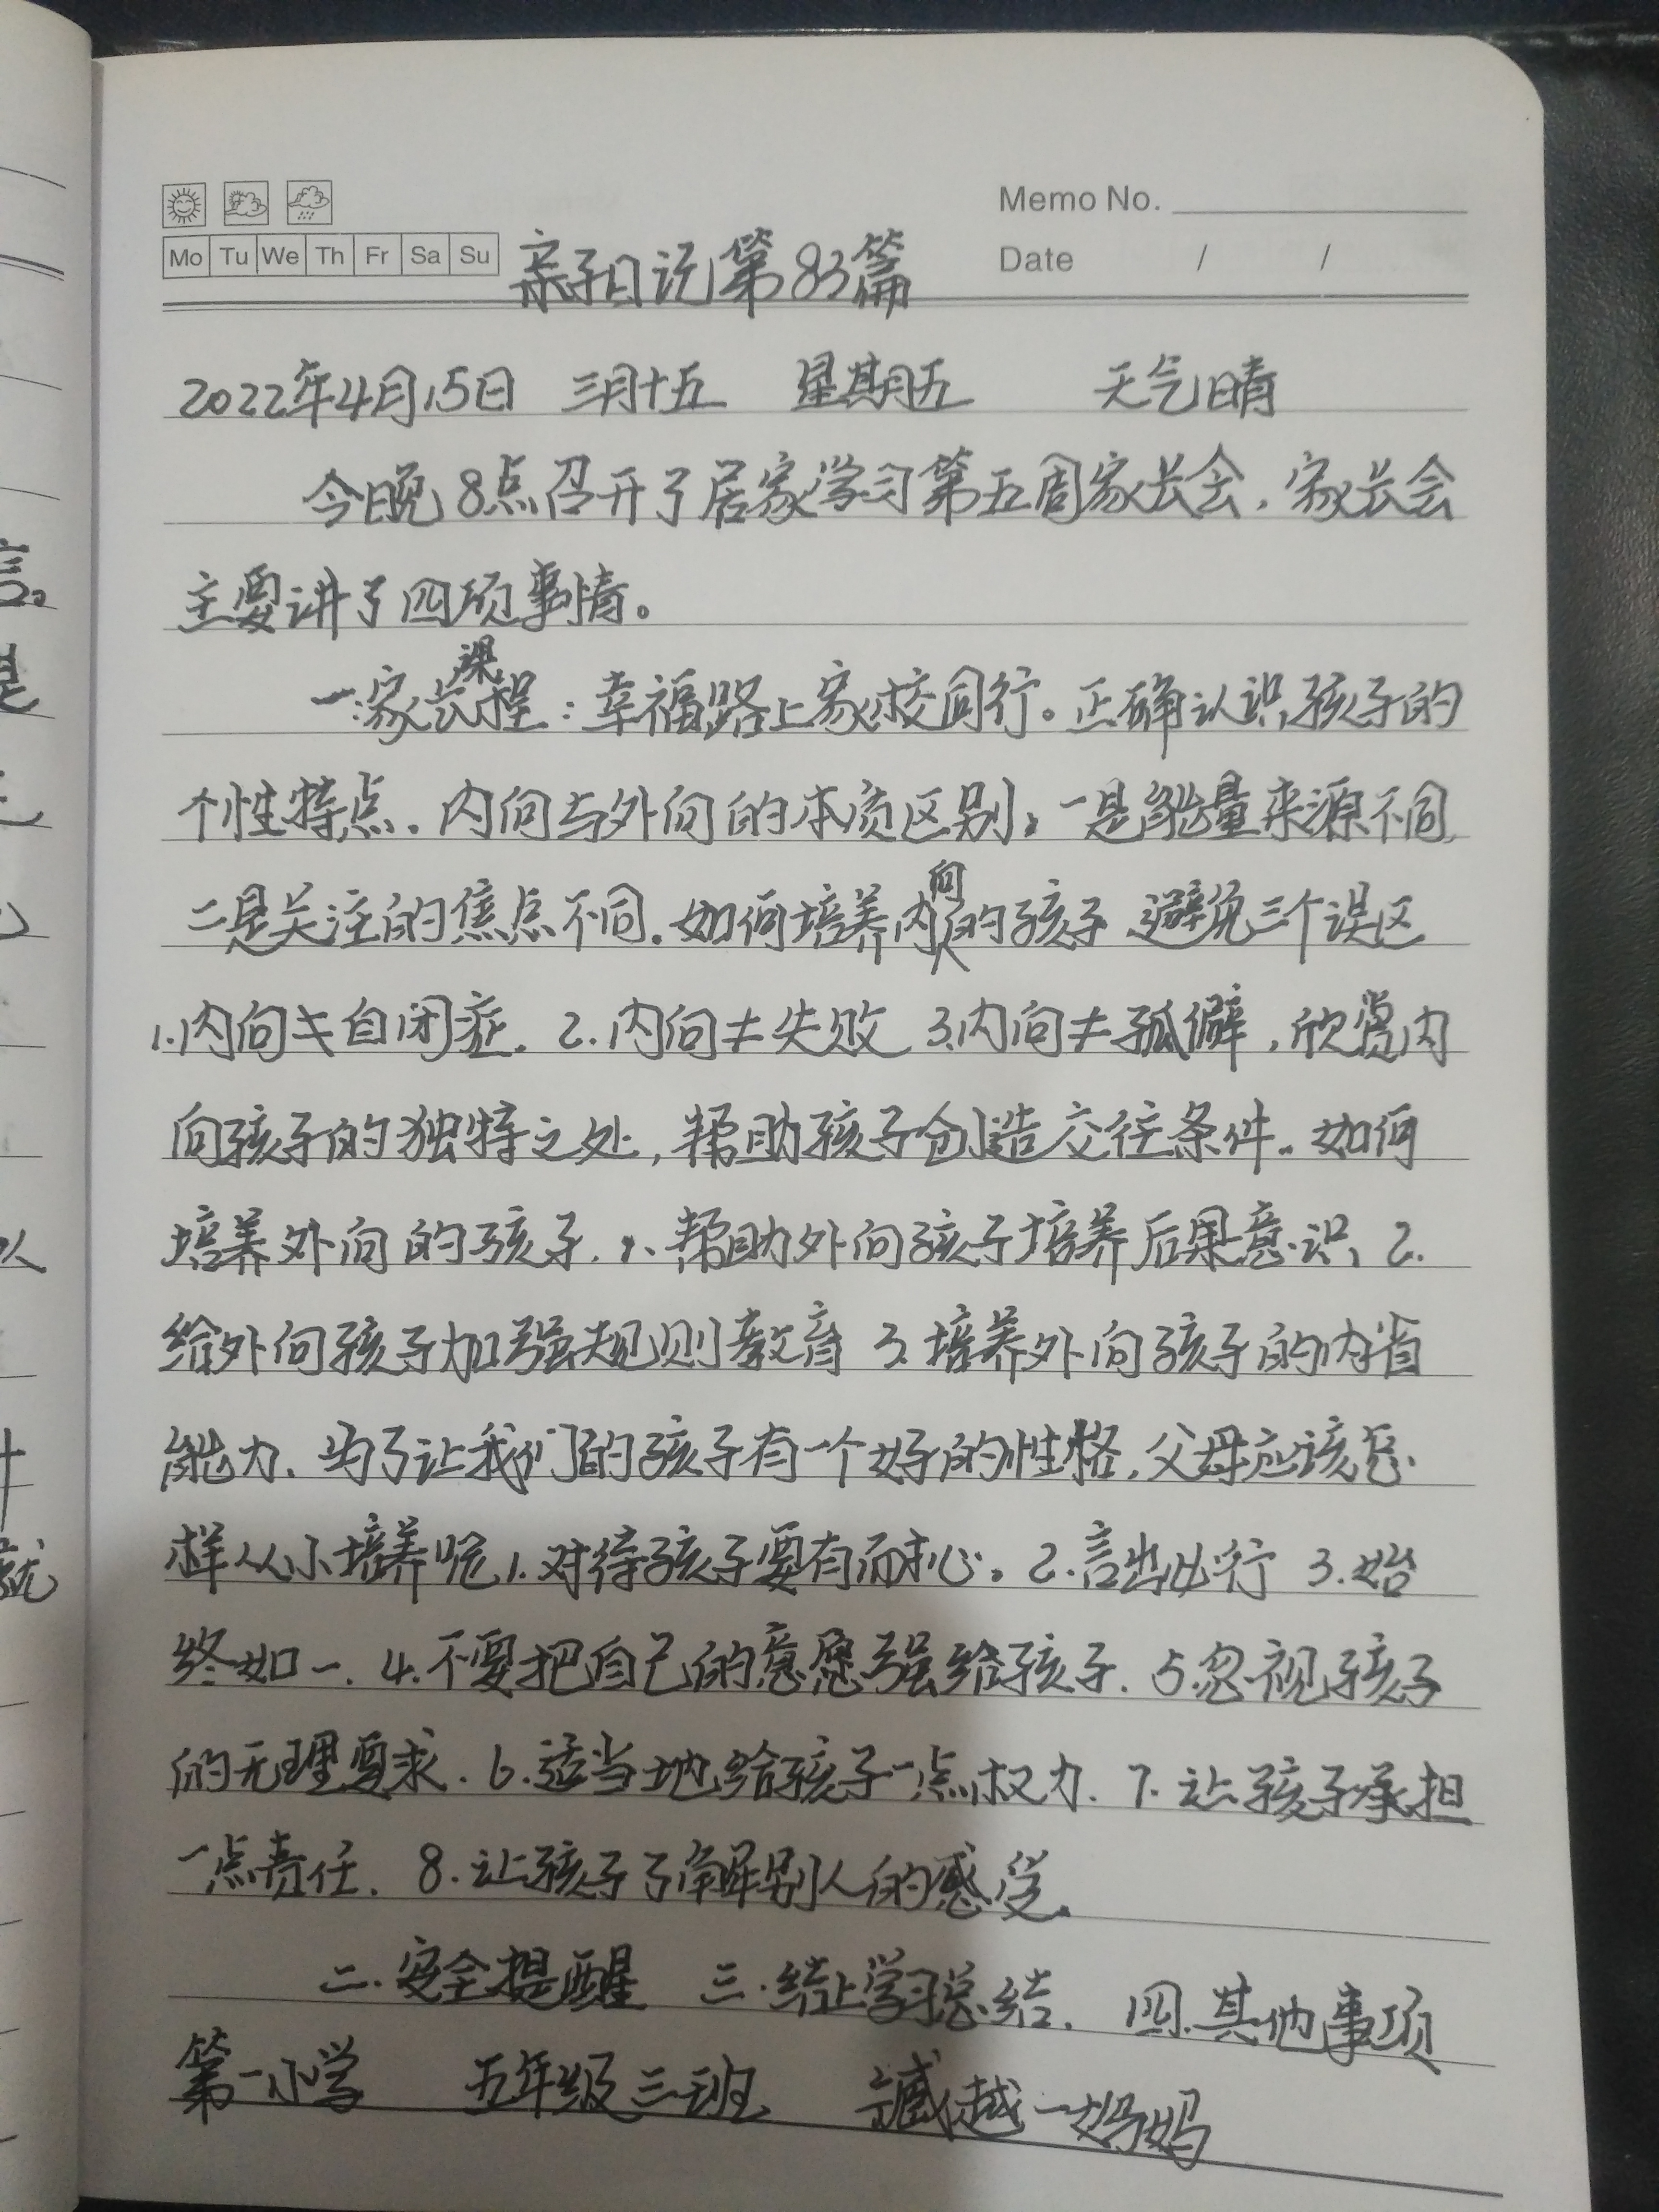 Memo No.
Mo Tu We Th Fr Sa Su
Date / /
亲子日记第83篇
2022年4月15日 三月十五 星期五 天气晴
今晚8点召开了居家学习第五周家长会，家长会
主要讲了四项事情。
一.家长课程：幸福路上家校同行。正确认识孩子的
个性特点．内向与外向的本质区别；一是能量来源不同，
二是关注的焦点不同．如何培养内向的孩子避免三个误区
1.内向≠自闭症． 2.内向≠失败 3.内向≠孤僻，欣赏内
向孩子的独特之处，帮助孩子创造交往条件．如何
培养外向的孩子．1、帮助外向孩子培养后果意识、2.
给外向孩子加强规则教育 3.培养外向孩子的内省
能力．为了让我们的孩子有一个好的性格，父母应该怎
样从小培养呢1.对待孩子要有耐心。2.言出必行 3.始
终如一．4.不要把自己的意愿强给孩子．5忽视孩子
的无理要求．6.适当地给孩子一点权力．7.让孩子承担
一点责任．8.让孩子了解别人的感受．
二.安全提醒 三.线上学习总结． 四.其他事项
第一小学 五年级三班 越一妈妈
言。
是
以
就